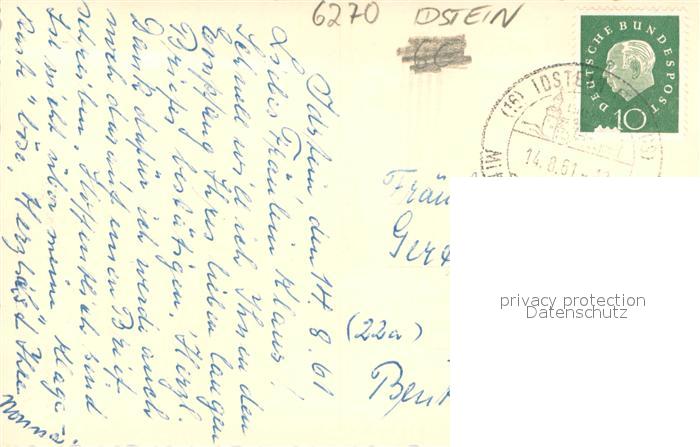 6270 IDSTEIN
60
DEUTSCHE BUNDESPOST
10
(16) IDSTEIN
14.8.61
Idstein, den 14.8.61
Liebes Fräulein Klaus!
Schnell will ich Ihnen den
Empfang Ihres lieben langen
Briefes bestätigen. Herzl.
Dank dafür ich werde auch
noch darauf einen Brief
schreiben. Hoffentlich sind
Sie nicht über meine
böse. Herzlichst Ihre
Fräu
Gerd
(22a)
Ben
privacy protection
Datenschutz